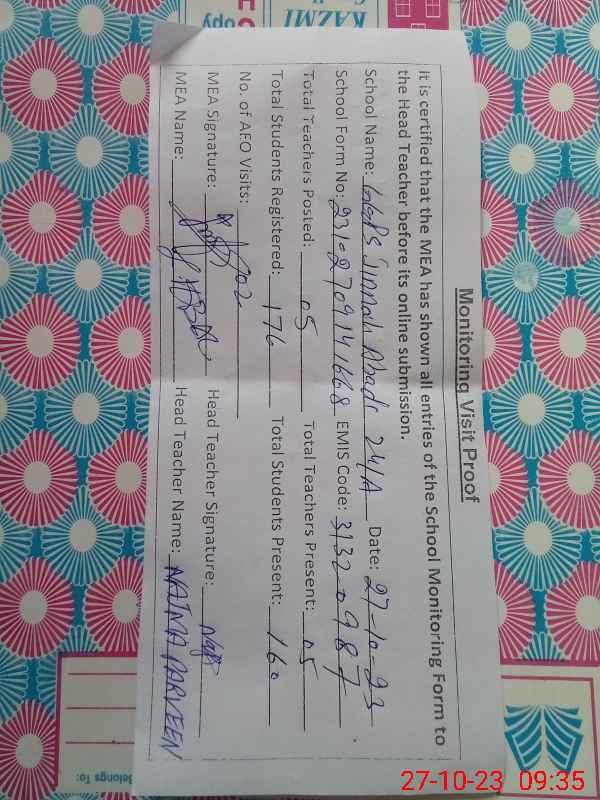 Monitoring Visit Proof
It is certified that the MEA has shown all entries of the School Monitoring Form to
the Head Teacher before its online submission.
School Name: GGPS Jinnah Abadi 24/A Date: 27-10-23
School Form No: 23102709141668 EMIS Code: 31320987
Total Teachers Posted: 05 Total Teachers Present: 05
Total Students Registered: 176 Total Students Present: 160
No. of AEO Visits: 02
MEA Signature: Head Teacher Signature:
MEA Name: Head Teacher Name: NAJMA PARVEEN
KAZMI
opy
Belongs To:
27-10-23 09:35